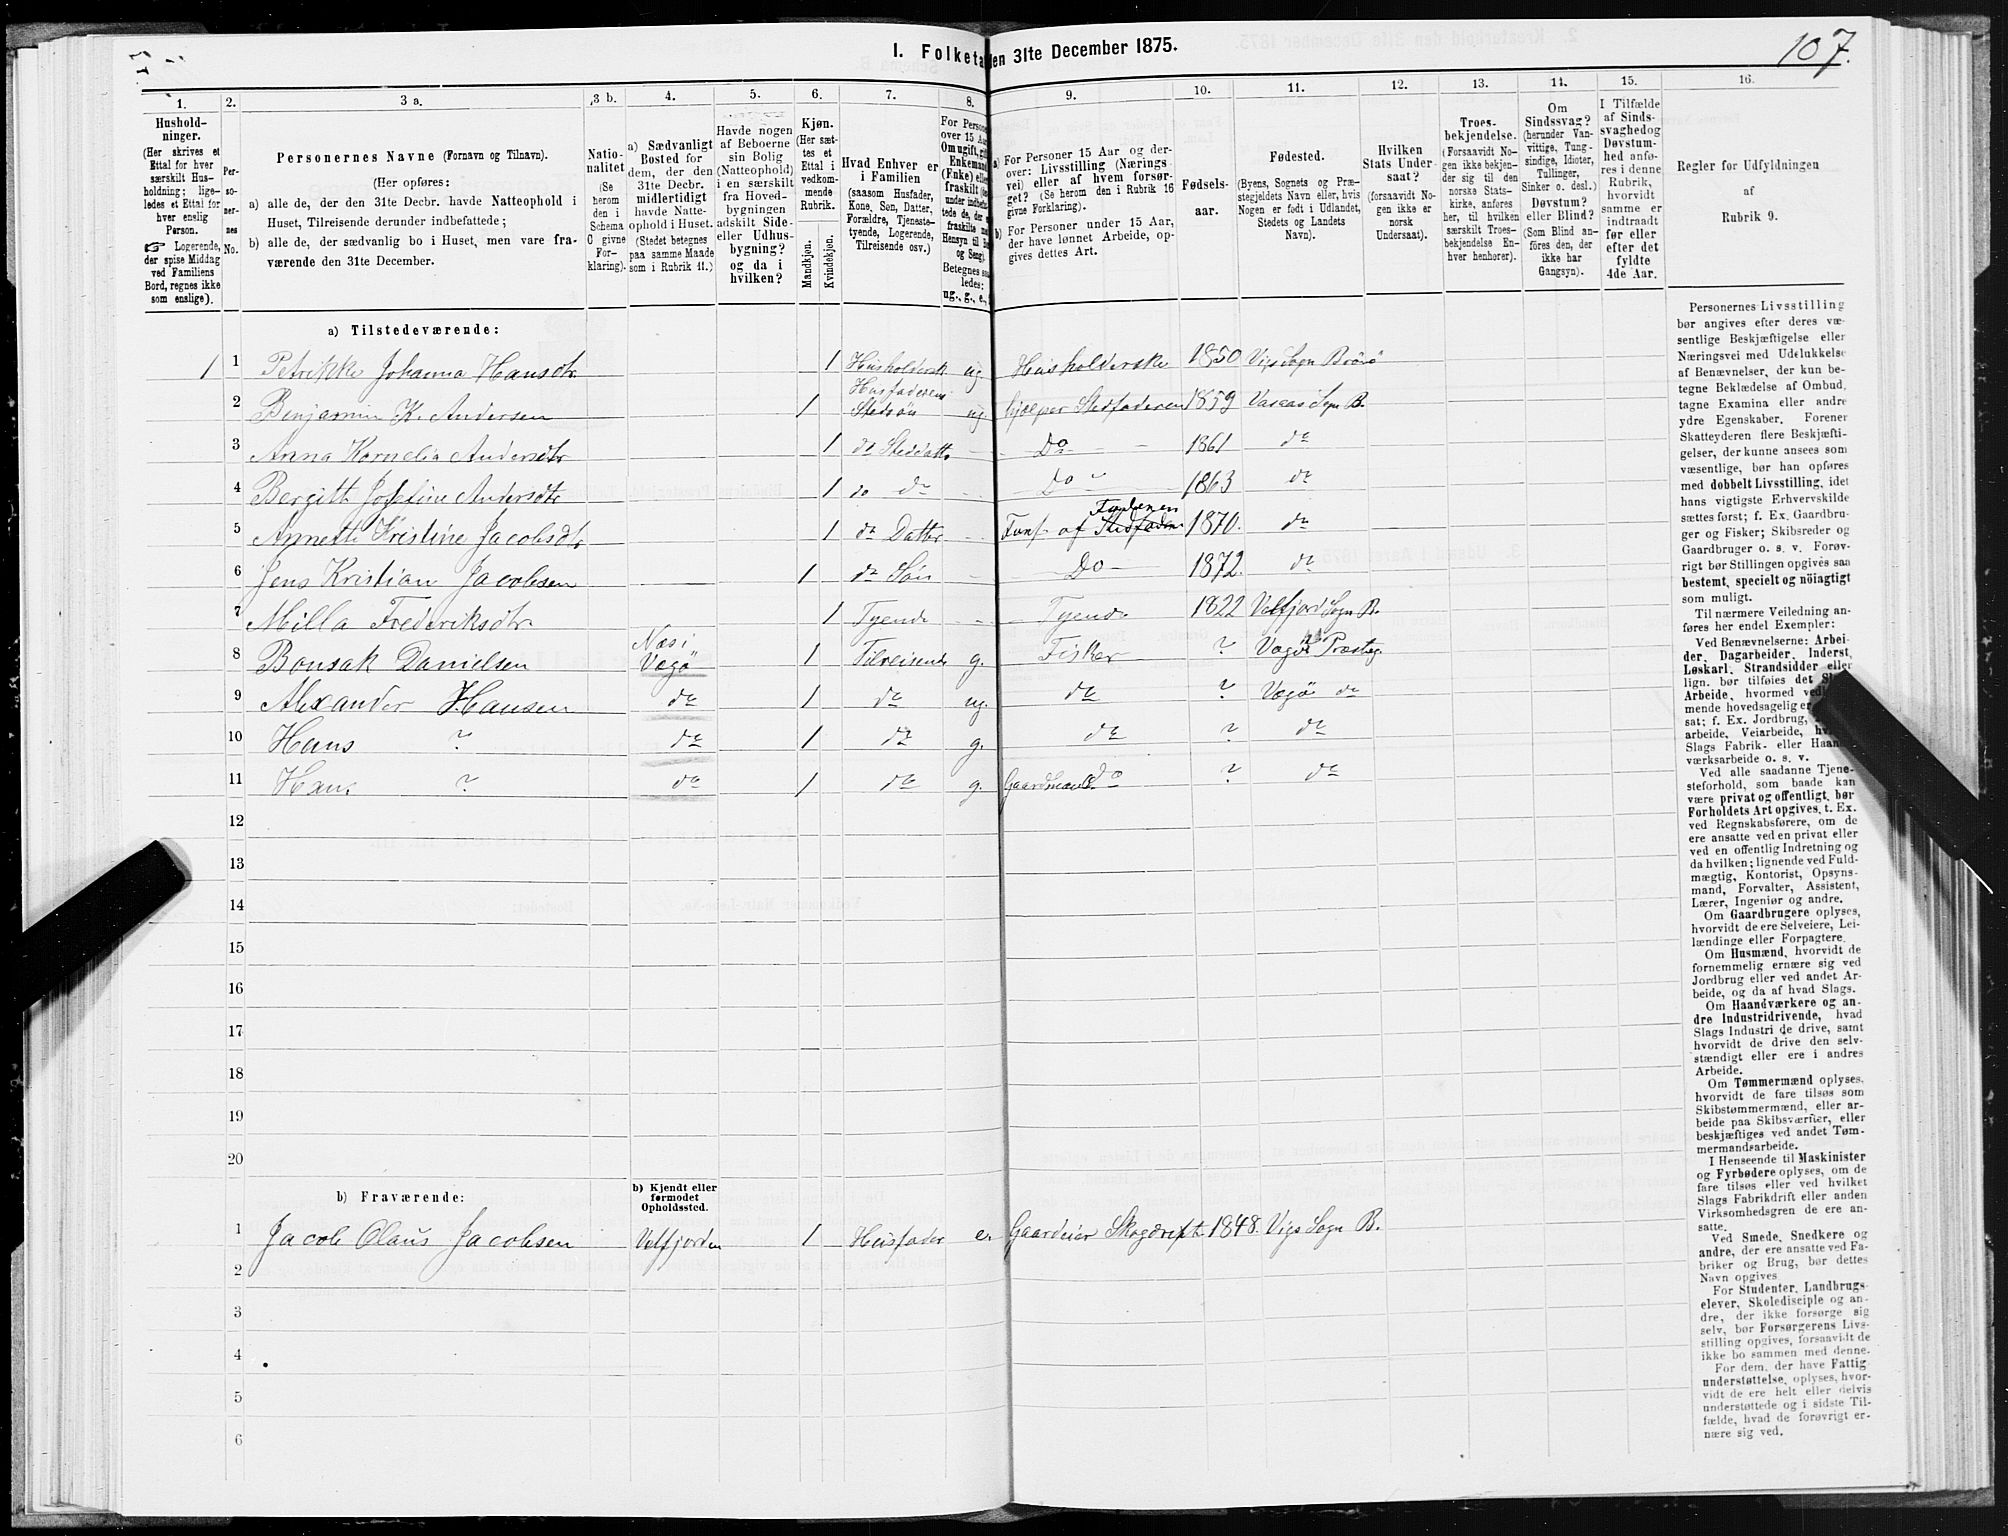 I. Folketa
en 31te December 1875.
107.
1.
2.
3 a.
3 b.
4.
5.
6.
7.
8.
9.
10.
11.
12.
13.
14.
15.
16.
Hushold-
ninger.
(Her skrives et
Ettal for hver
særskilt Hus-
holdning; lige-
ledes et Ettal for
hver enslig
Person.
☞ Logerende,
der spise Middag
ved Familiens
Bord, regnes ikke
som enslige).
Per-
so-
ner-
nes
No.
Personernes Navne (Fornavn og Tilnavn).
(Her opføres:
a) alle de, der den 31te Decbr. havde Natteophold i
Huset, Tilreisende derunder indbefattede;
b) alle de, der sædvanlig bo i Huset, men vare fra-
værende den 31te December.
Natio-
nalitet
(Se
herom
den i
Schema
C givne
For-
klaring).
a) Sædvanligt
Bosted for
dem, der den
31te Decbr.
midlertidigt
havde Natte-
ophold i Huset.
(Stedet betegnes
paa samme Maade
som i Rubrik 11.)
Havde nogen
af Beboerne
sin Bolig
(Natteophold)
i en særskilt
fra Hoved-
bygningen
adskilt Side-
eller Udhus-
bygning?
og da i
hvilken?
Kjøn.
(Her sæt-
tes et
Ettal i
vedkom-
mende
Rubrik.
Mandkjøn.
Kvindekjøn.
Hvad Enhver er
i Familien
(saasom Husfader,
Kone, Søn, Datter,
Forældre, Tjeneste-
tyende, Logerende,
Tilreisende osv.)
For Persone
over 15 Aa
Om ugift, gi
Enkemand
(Enke) elle
fraskilt
under indbef
tede de, der
fraskilte
Hensyn til Bo
og Seng).
Betegnes saa
ledes:
ug., g., e.,
a) For Personer 15 Aar og der-
over: Livsstilling (Nærings
vei) eller af hvem forsør-
get? (Se herom den i Rubrik 16
givne Forklaring).
b) For Personer under 15 Aar,
der have lønnet Arbeide, op-
gives dettes Art.
Fødsels-
aar.
Fødested.
(Byens, Sognets og Præ-
stegjeldets Navn eller, hvis
Nogen er født i Udlandet,
Stedets og Landets
Navn).
Hvilken
Stats Under-
saat?
(forsaavidt No-
gen ikke er
norsk
Undersaat).
Troes-
bekjendelse.
(Forsaavidt No-
gen ikke bekjen-
der sig til den
norske Stats-
kirke, anføres
her, til hvilken
særskilt Troes-
bekjendelse En-
hver henhører).
Om
Sindssvag?
(herunder Van-
vittige, Tung-
sindige, Idioter,
Tullinger,
Sinker o. desl.)
Døvstum?
eller Blind?
(Som Blind an-
føres den, der
ikke har
Gangsyn).
I Tilfælde
af Sinds-
svaghed og
Døvstum-
hed anfø-
res i denne
Rubrik,
hvorvidt
samme er
indtraadt
før eller
efter det
fyldte
4de Aar.
Regler for Udfyldningen
af
Rubrik 9.
a) Tilstedeværende:
1 1 Petrikke Johanna Hansdtr. 1 Husholdersk ug. Husholderske 1850 Vigs Sogn Brönö
2 Benjamin K. Andersen 1 Husfaderens Stedsön ug. hjelper Stedfaderen 1859 Sogn B.
3 Anna Kornelia Andersdtr 1 do Steddatt. - Do - 1861 do
4 Bergitt Josefine Andersdtr 1 do do - Do " 1863 do
5 Annette Kristine Jacobsdtr 1 do Datter - Fors. af Stedfaderen Faderen 1870. do
6 Jens Kristian Jacobsen 1 do Sön - Do - 1872. do
7 Milla Frederiksdtr. 1 Tyende - Tyende 1822 Velfjord Sogn B.
8 Bonsak Danielsen Næs i Vegö 1 Tilreisende g. Fisker ? Præsteg.
9 Alexander Hansen do 1 do ug. do ? Vegö do
10 Hans ? do 1 do g. do ? do
11 Hans ? do 1 do g. Gaardmand do ? do
12
13
14
15
16
17
18
19
20
b) Fraværende:
b) Kjendt eller
formodet
Opholdssted.
1 Jacob Olaus Jacobsen Velfjorden 1 Husfader e. Gaardeier Skogdrift 1848. Vigs Sogn B.
2
3
4
5
6
Personernes Livsstilling
bør angives efter deres væ-
sentlige Beskjæftigelse eller
Næringsvei med Udelukkelse
af Benævnelser, der kun be-
tegne Beklædelse af Ombud,
tagne Examina eller andre
ydre Egenskaber. Forener
Skatteyderen flere Beskjæfti-
gelser, der kunne ansees som
væsentlige, bør han opføres
med dobbelt Livsstilling, idet
hans vigtigste Erhvervskilde
sættes først; f. Ex. Gaardbru-
ger og Fisker; Skibsreder og
Gaardbruger o. s. v. Forøv-
rigt bør Stillingen opgives saa
bestemt, specielt og nöiagtigt
som muligt.
Til nærmere Veiledning an-
føres her endel Exempler:
Ved Benævnelserne: Arbei-
der, Dagarbeider, Inderst,
Løskarl, Strandsidder eller
lign. bør tilføies det Sl
Arbeide, hvormed ved
mende hovedsagelig er
sat; f. Ex. Jordbrug,
arbeide, Veiarbeide, hv
Slags Fabrik- eller Haan
værksarbeide o. s. v.
Ved alle saadanne Tjene-
steforhold, som baade kan
være privat og offentligt, bør
Forholdets Art opgives, t. Ex.
ved Regnskabsførere, om de
ere ansatte ved en privat eller
ved en offentlig Indretning og
da hvilken; lignende ved Fuld-
mægtig, Kontorist, Opsyns-
mand, Forvalter, Assistent,
Lærer, Ingeniør og andre.
Om Gaardbrugere oplyses,
hvorvidt de ere Selveiere, Lei-
lændinge eller Forpagtere.
Om Husmænd, hvorvidt de
fornemmelig ernære sig ved
Jordbrug eller ved andet Ar-
beide, og da af hvad Slags.
Om Haandværkere og an-
dre Industridrivende, hvad
Slags Industri de drive, samt
hvorvidt de drive den selv-
stændigt eller ere i andres
Arbeide.
Om Tømmermænd oplyses,
hvorvidt de fare tilsøs som
Skibstømmermænd, eller ar-
beide paa Skibsværfter, eller
beskjæftiges ved andet Tøm-
mermandsarbeide.
I Henseende til Maskinister
og Fyrbødere oplyses, om de
fare tilsøs eller ved hvilket
Slags Fabrikdrift eller anden
Virksomhedsgren de ere an-
satte.
Ved Smede, Snedkere og
andre, der ere ansatte ved Fa-
briker og Brug, bør dettes
Navn opgives.
For Studenter, Landbrugs-
elever, Skoledisciple og an-
dre, der ikke forsørge sig
selv, bør Forsørgerens Livs-
stilling opgives, forsaavidt de
ikke bo sammen med denne.
For dem, der have Fattig
understøttelse, oplyses, hvor-
vidt de ere helt eller delvis
understøttede og i sidste Til-
fælde, hvad de forøvrigt er-
nære sig ved.